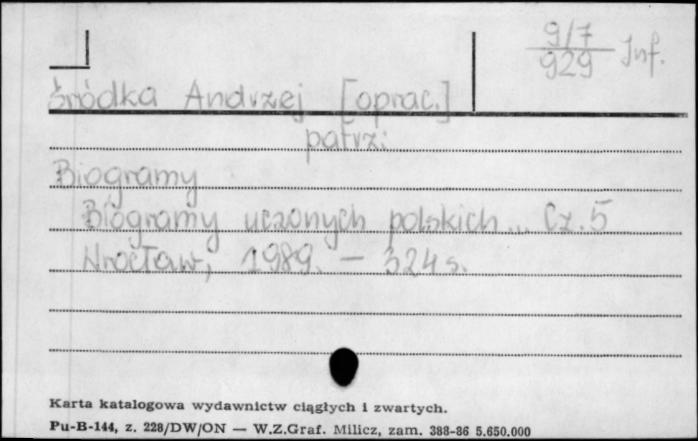 9/7
929 Inf.
Śródka Andrzej [oprac.]
patrz:
Biogramy
Biogramy uczonych polskich... Cz. 5
Wrocław, 1989. — 324 s.
Karta katalogowa wydawnictw ciągłych i zwartych.
Pu-B-144, z. 228/DW/ON — W.Z.Graf. Milicz, zam. 388-86 5.650.000